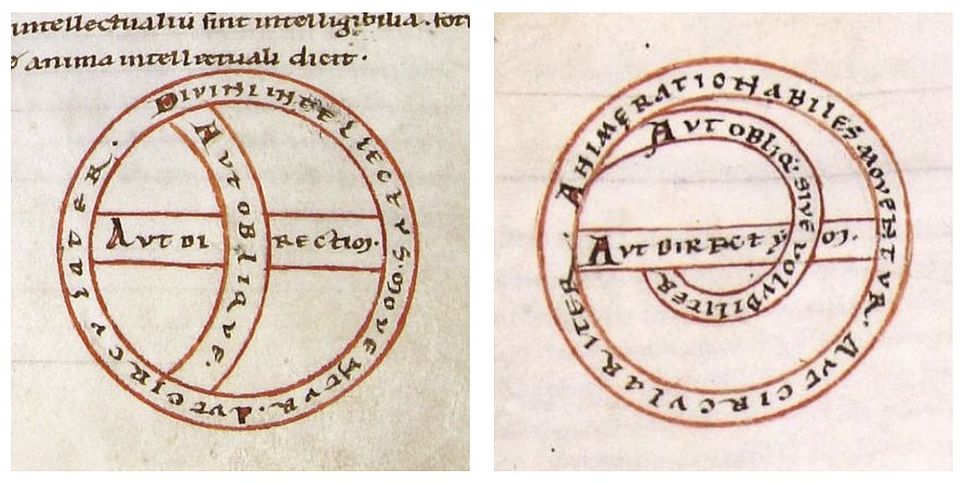 intellectualiū sint intelligibilia.
anima intellectuali dicit.
DIVINI INTELLECTUS MOVENTUR. AUT CIRCULARITER.
AUT OBLIQUE.
AUT DIRECTIM.
ANIME RATIONABILES MOVENTUR. AUT CIRCULARITER.
AUT OBLIQ SIVE VOLUBILITER
AUT DIRECT